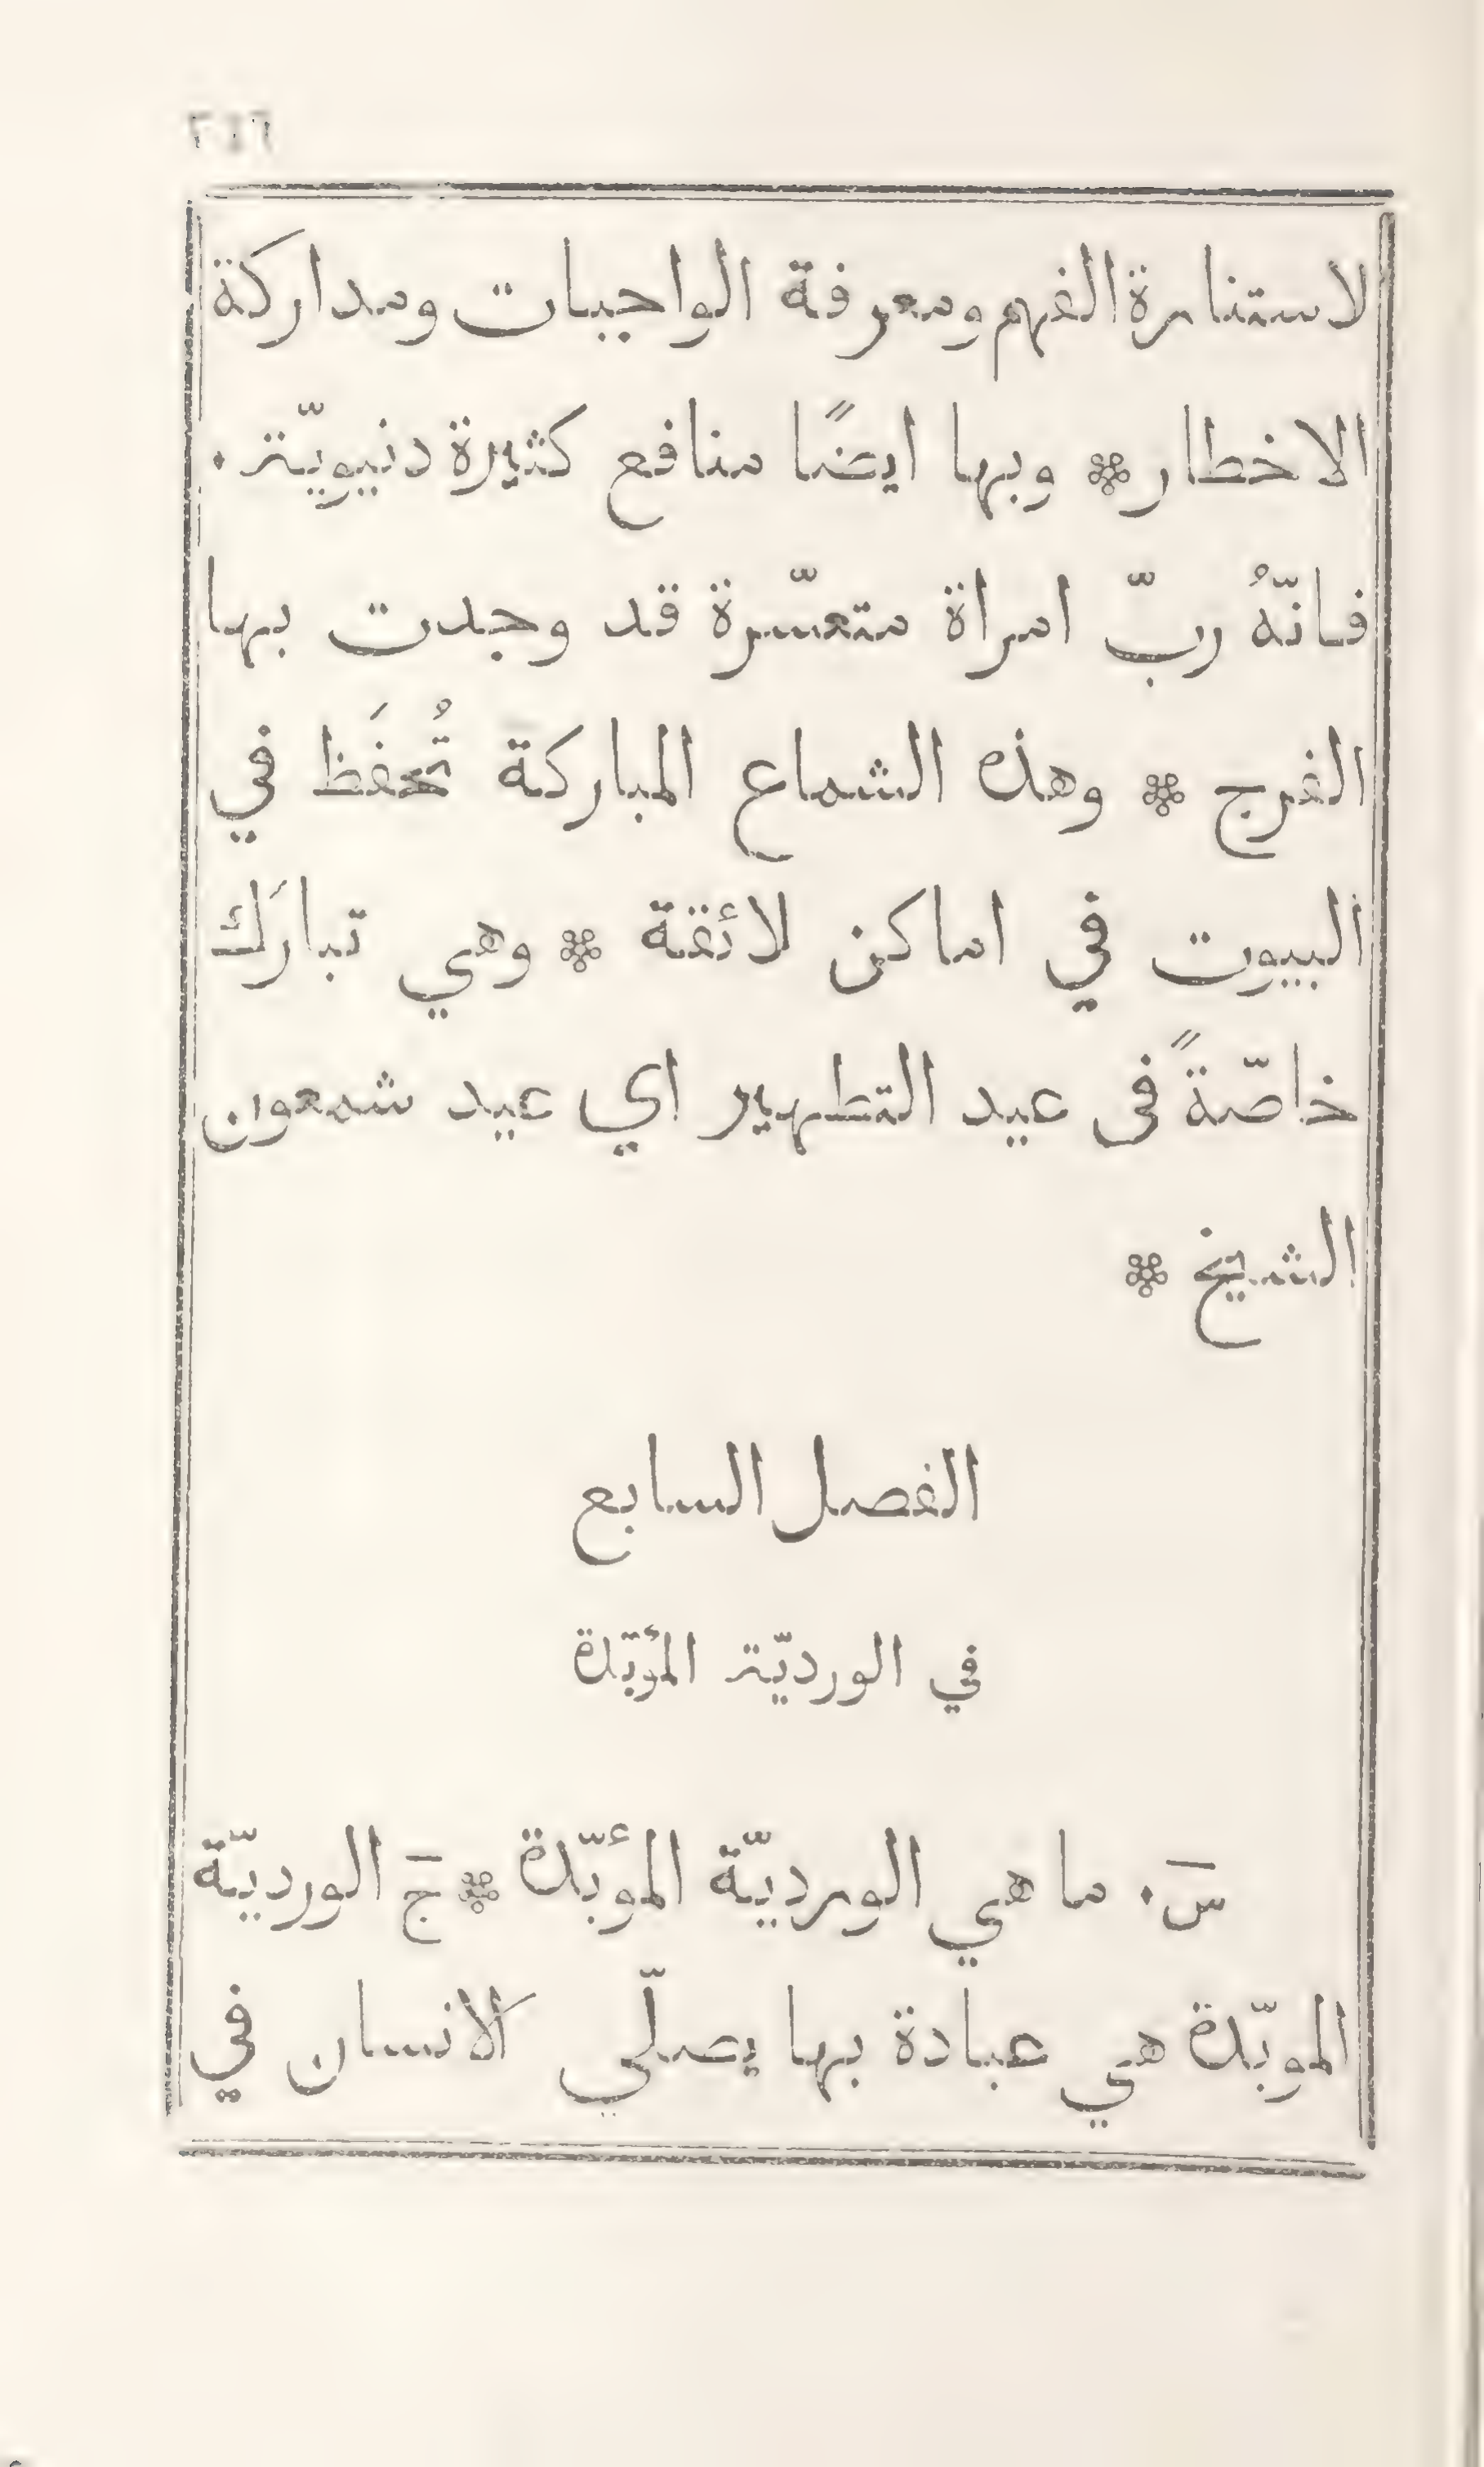 لاستنارة الفهم ومعرفة الواجبات ومداركة
الاخطار * وبها ايضًا منافع كثيرة دنيويّة.
فانّهُ ربّ امراة متعسّرة قد وجدت بها
الفرج * وهذه الشماع المباركة تُحفَظ في
البيوت في اماكن لائقة * وهي تبارَك
خاصّةً فى عيد التطهير اي عيد شمعون
الشيخ *
الفصل السابع
في الورديّة المؤبّدة
سَ. ما هي الورديّة المؤبّدة * جَ الورديّة
الموبّدة هي عبادة بها يصلّي الانسان في